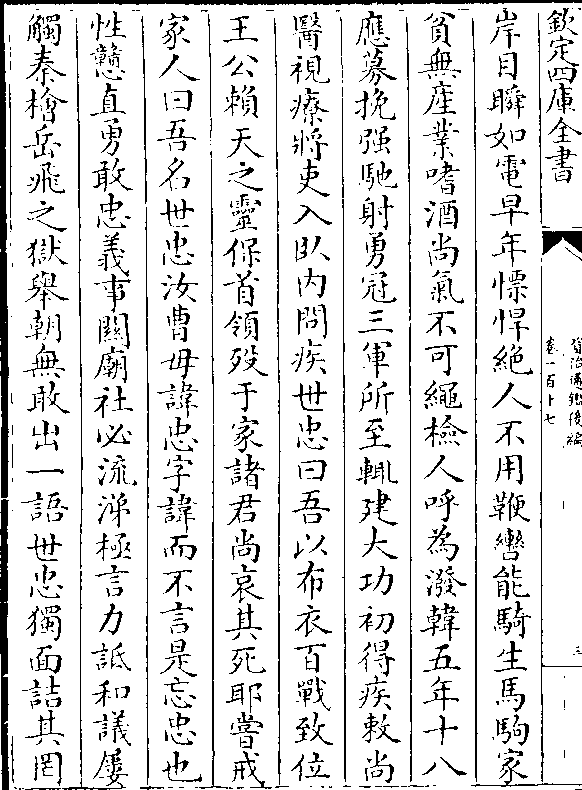 欽定四庫全書
資治通鑑後編
卷一百十七
三
岸目瞬如電早年慓悍絶人不用鞭轡能騎生馬駒家
貧無產業嗜酒尚氣不可繩檢人呼為潑韓五年十八
應募挽强馳射勇冠三軍所至輒建大功初得疾敕尚
醫視療將吏入臥内問疾世忠曰吾以布衣百戰致位
王公賴天之靈保首領歿于家諸君尚哀其死耶嘗戒
家人曰吾名世忠汝曹毋諱忠字諱而不言是忘忠也
性戅直勇敢忠義事關廟社必流涕極言力詆和議屢
觸秦檜岳飛之獄舉朝無敢出一語世忠獨面詰其罔